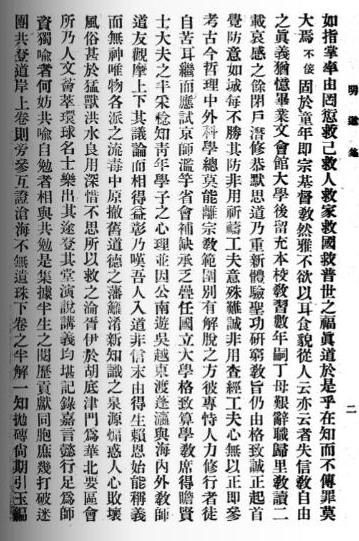 明道集
二
如指掌率由罔愆救己救人救家救國救普世之福眞道於是乎在知而不傳罪莫
大焉不佞固於童年卽宗基督敎然雅不欲以耳食貌從人云亦云者失信敎自由
之眞義猶憶畢業文會館大學後留充本校敎習數年嗣丁母艱辭職歸里敎讀二
載哀感之餘閉戶潛修恭默思道乃重新體驗聖功研窮敎旨仍由格致誠正起首
覺防意如城每不勝其防非用祈禱工夫意殊難誠非用查經工夫心無以正卽參
考古今哲理中外科學總莫能離宗敎範圍別有解脫之方彼專恃人力修行者徒
自苦耳繼而應試京師濫竽省會補缺承乏疊任國立大學格致算學敎席得瞻賢
士大夫之丰采稔知靑年學子之心理並因公南遊吳越東渡蓬瀛與海內外敎師
道友觀摩上下其議論而相得益彰乃嘆吾人入道非信末由得生賴恩始能稱義
而無神唯物各派之流毒中原撤舊道德之藩籬淆新知識之泉源煽惑人心敗壞
風俗甚於猛獸洪水良用深惜不思所以救之淪胥伊於胡底津門爲華北要區會
所乃人文薈萃環球名士樂出其途登其堂演說講義均堪記錄嘉言懿行足爲師
資獨喩者何妨共喩自勉者相與共勉是集據半生之閱歷貢獻同胞庶幾打破迷
團共登道岸上卷則旁參互證滄海不無遺珠下卷之半解一知拋磚尙期引玉編